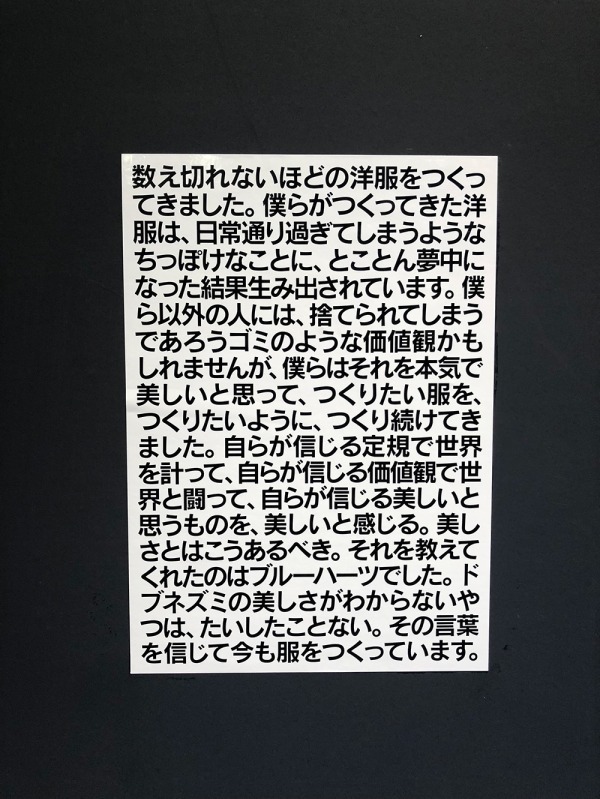 数え切れないほどの洋服をつくっ
てきました。僕らがつくってきた洋
服は、日常通り過ぎてしまうような
ちっぽけなことに、とことん夢中に
なった結果生み出されています。僕
ら以外の人には、捨てられてしまう
であろうゴミのような価値観かも
しれませんが、僕らはそれを本気で
美しいと思って、つくりたい服を、
つくりたいように、つくり続けてき
ました。自らが信じる定規で世界
を計って、自らが信じる価値観で世
界と闘って、自らが信じる美しいと
思うものを、美しいと感じる。美し
さとはこうあるべき。それを教えて
くれたのはブルーハーツでした。ド
ブネズミの美しさがわからないや
つは、たいしたことない。その言葉
を信じて今も服をつくっています。